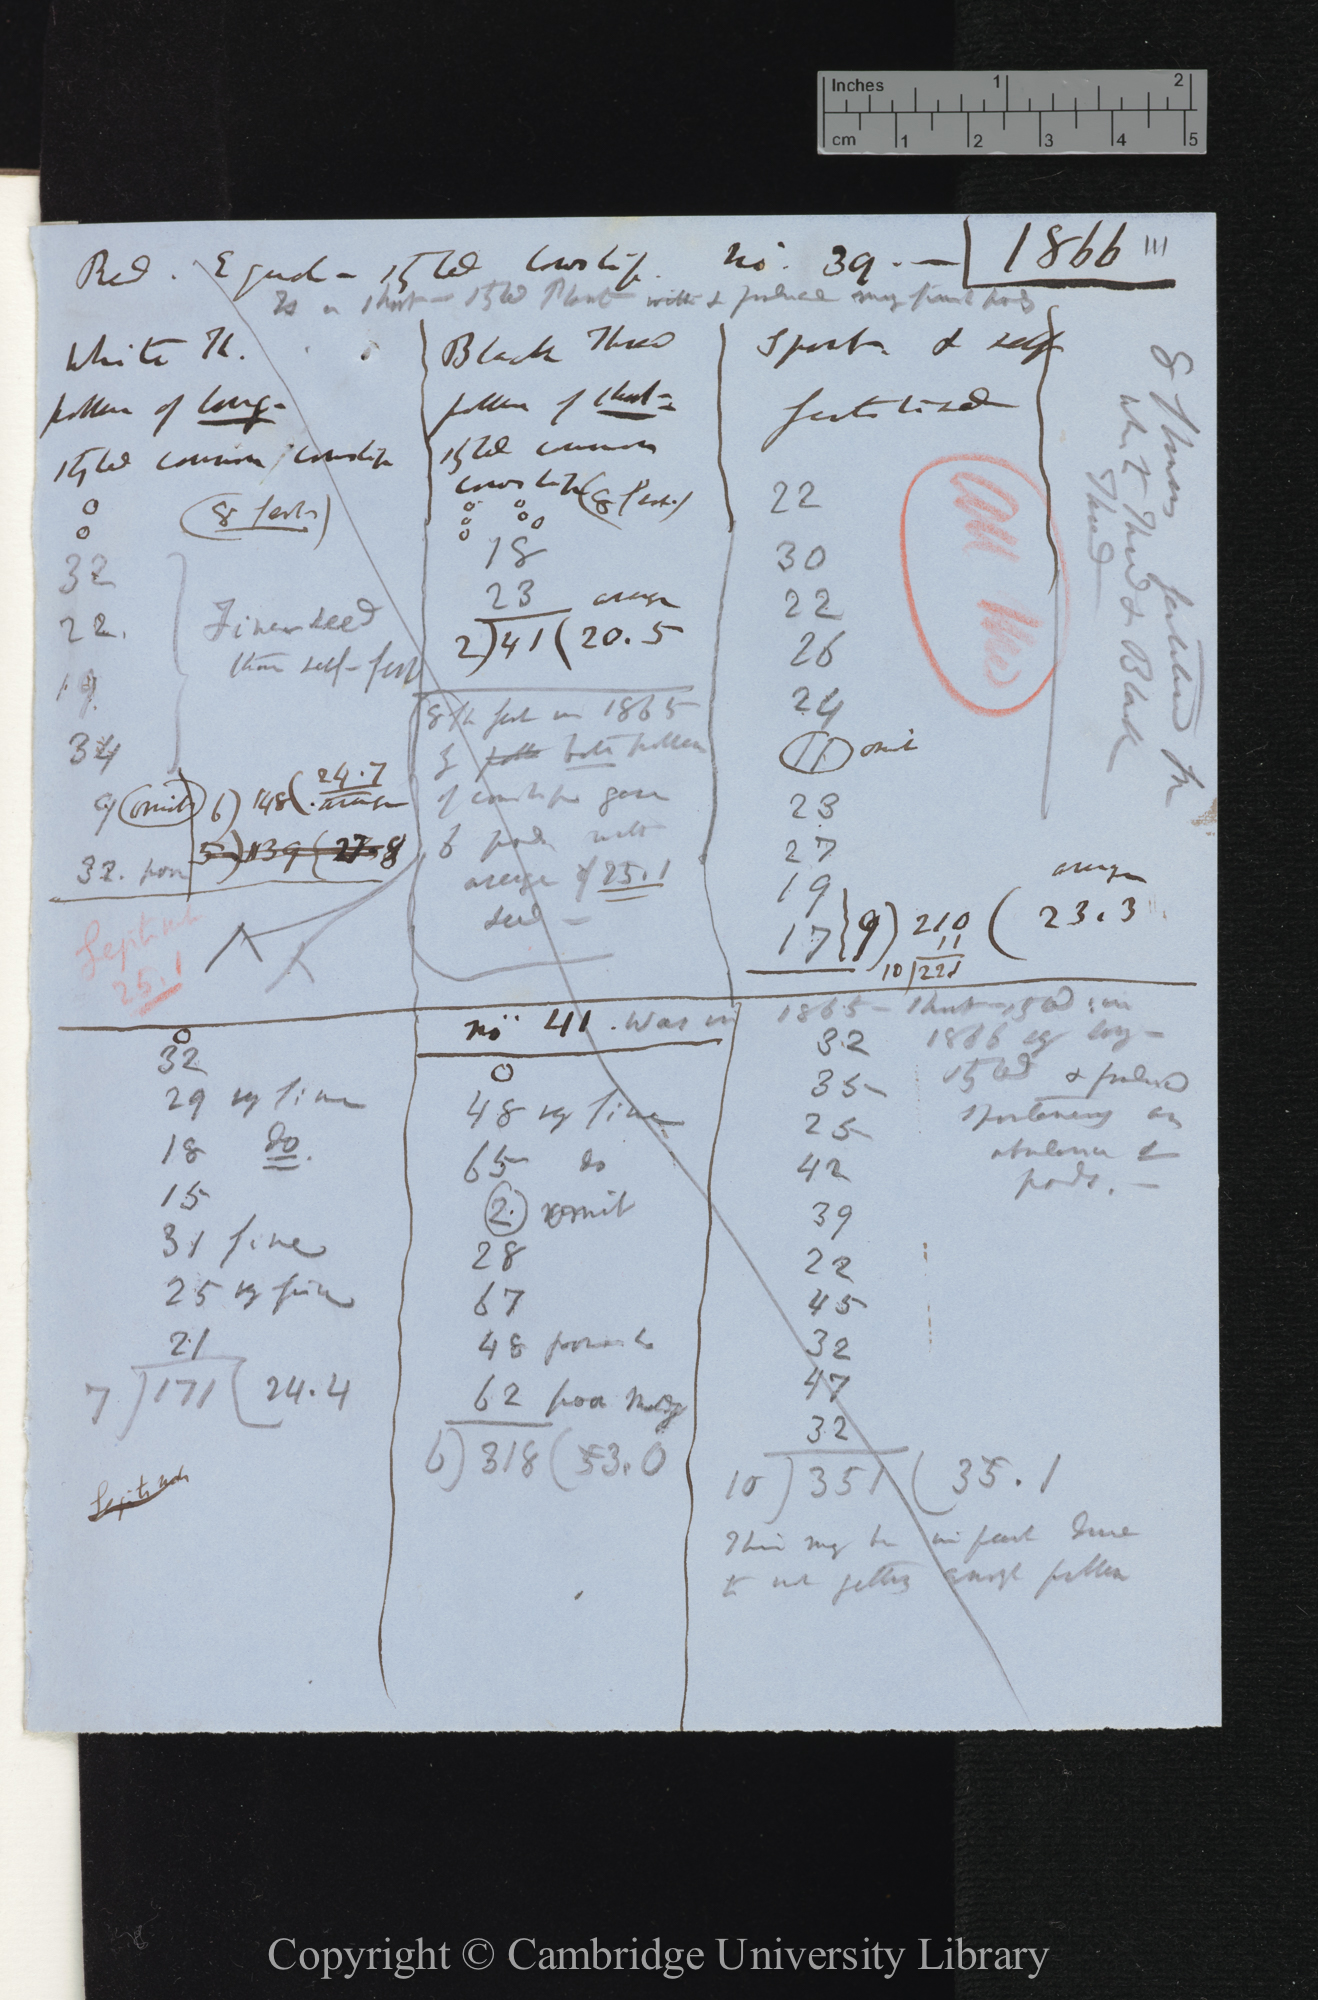 Inches 1 2
cm 1 2 3 4 5
Red. Equal-styled Cowslip. No. 39. — 1866 111
Is a short-styled Plant with & produced many fine pods
White Th.
pollen of long-
styled common Cowslip
(8 fert.)
0
0
32
22.
19
34
Finer seed
than self-fert
9 (omit) 6) 148 (24.7
average
32. poor 5) 139 (27.8
Legitimate
25.1
Black Thread
pollen of short-
styled common
Cowslip (8 fert.)
0 0
0 0 0
0
18
23 average
2) 41 (20.5
8 fl fert in 1865
by both pollen
of cowslips gave
6 pods with
average of 25.1
seed —
Spont. & self
fertilised
22
30
22
26
24
(11) omit
23
27
19
17 } 9) 210 ( 23.3
average
11
10 | 221
All Used
8 flowers fertilised by
white Thread & Black
Thread
0
32
29 vy fine
18 do.
15
31 fine
25 vy fine
21
7) 171 ( 24.4
Legitimate
No. 41. Was in 1865 — short-styled: in
1866 long-
styled & produced
spontaneously an
abundance of
pods. —
0
48 vy fine
65 do
(2.) omit
28
67
48
62 poor
6) 318 (53.0
32
35
25
42
39
22
45
32
47
32
10) 351 ( 35.1
This may be in part due
to not getting enough pollen
Copyright © Cambridge University Library